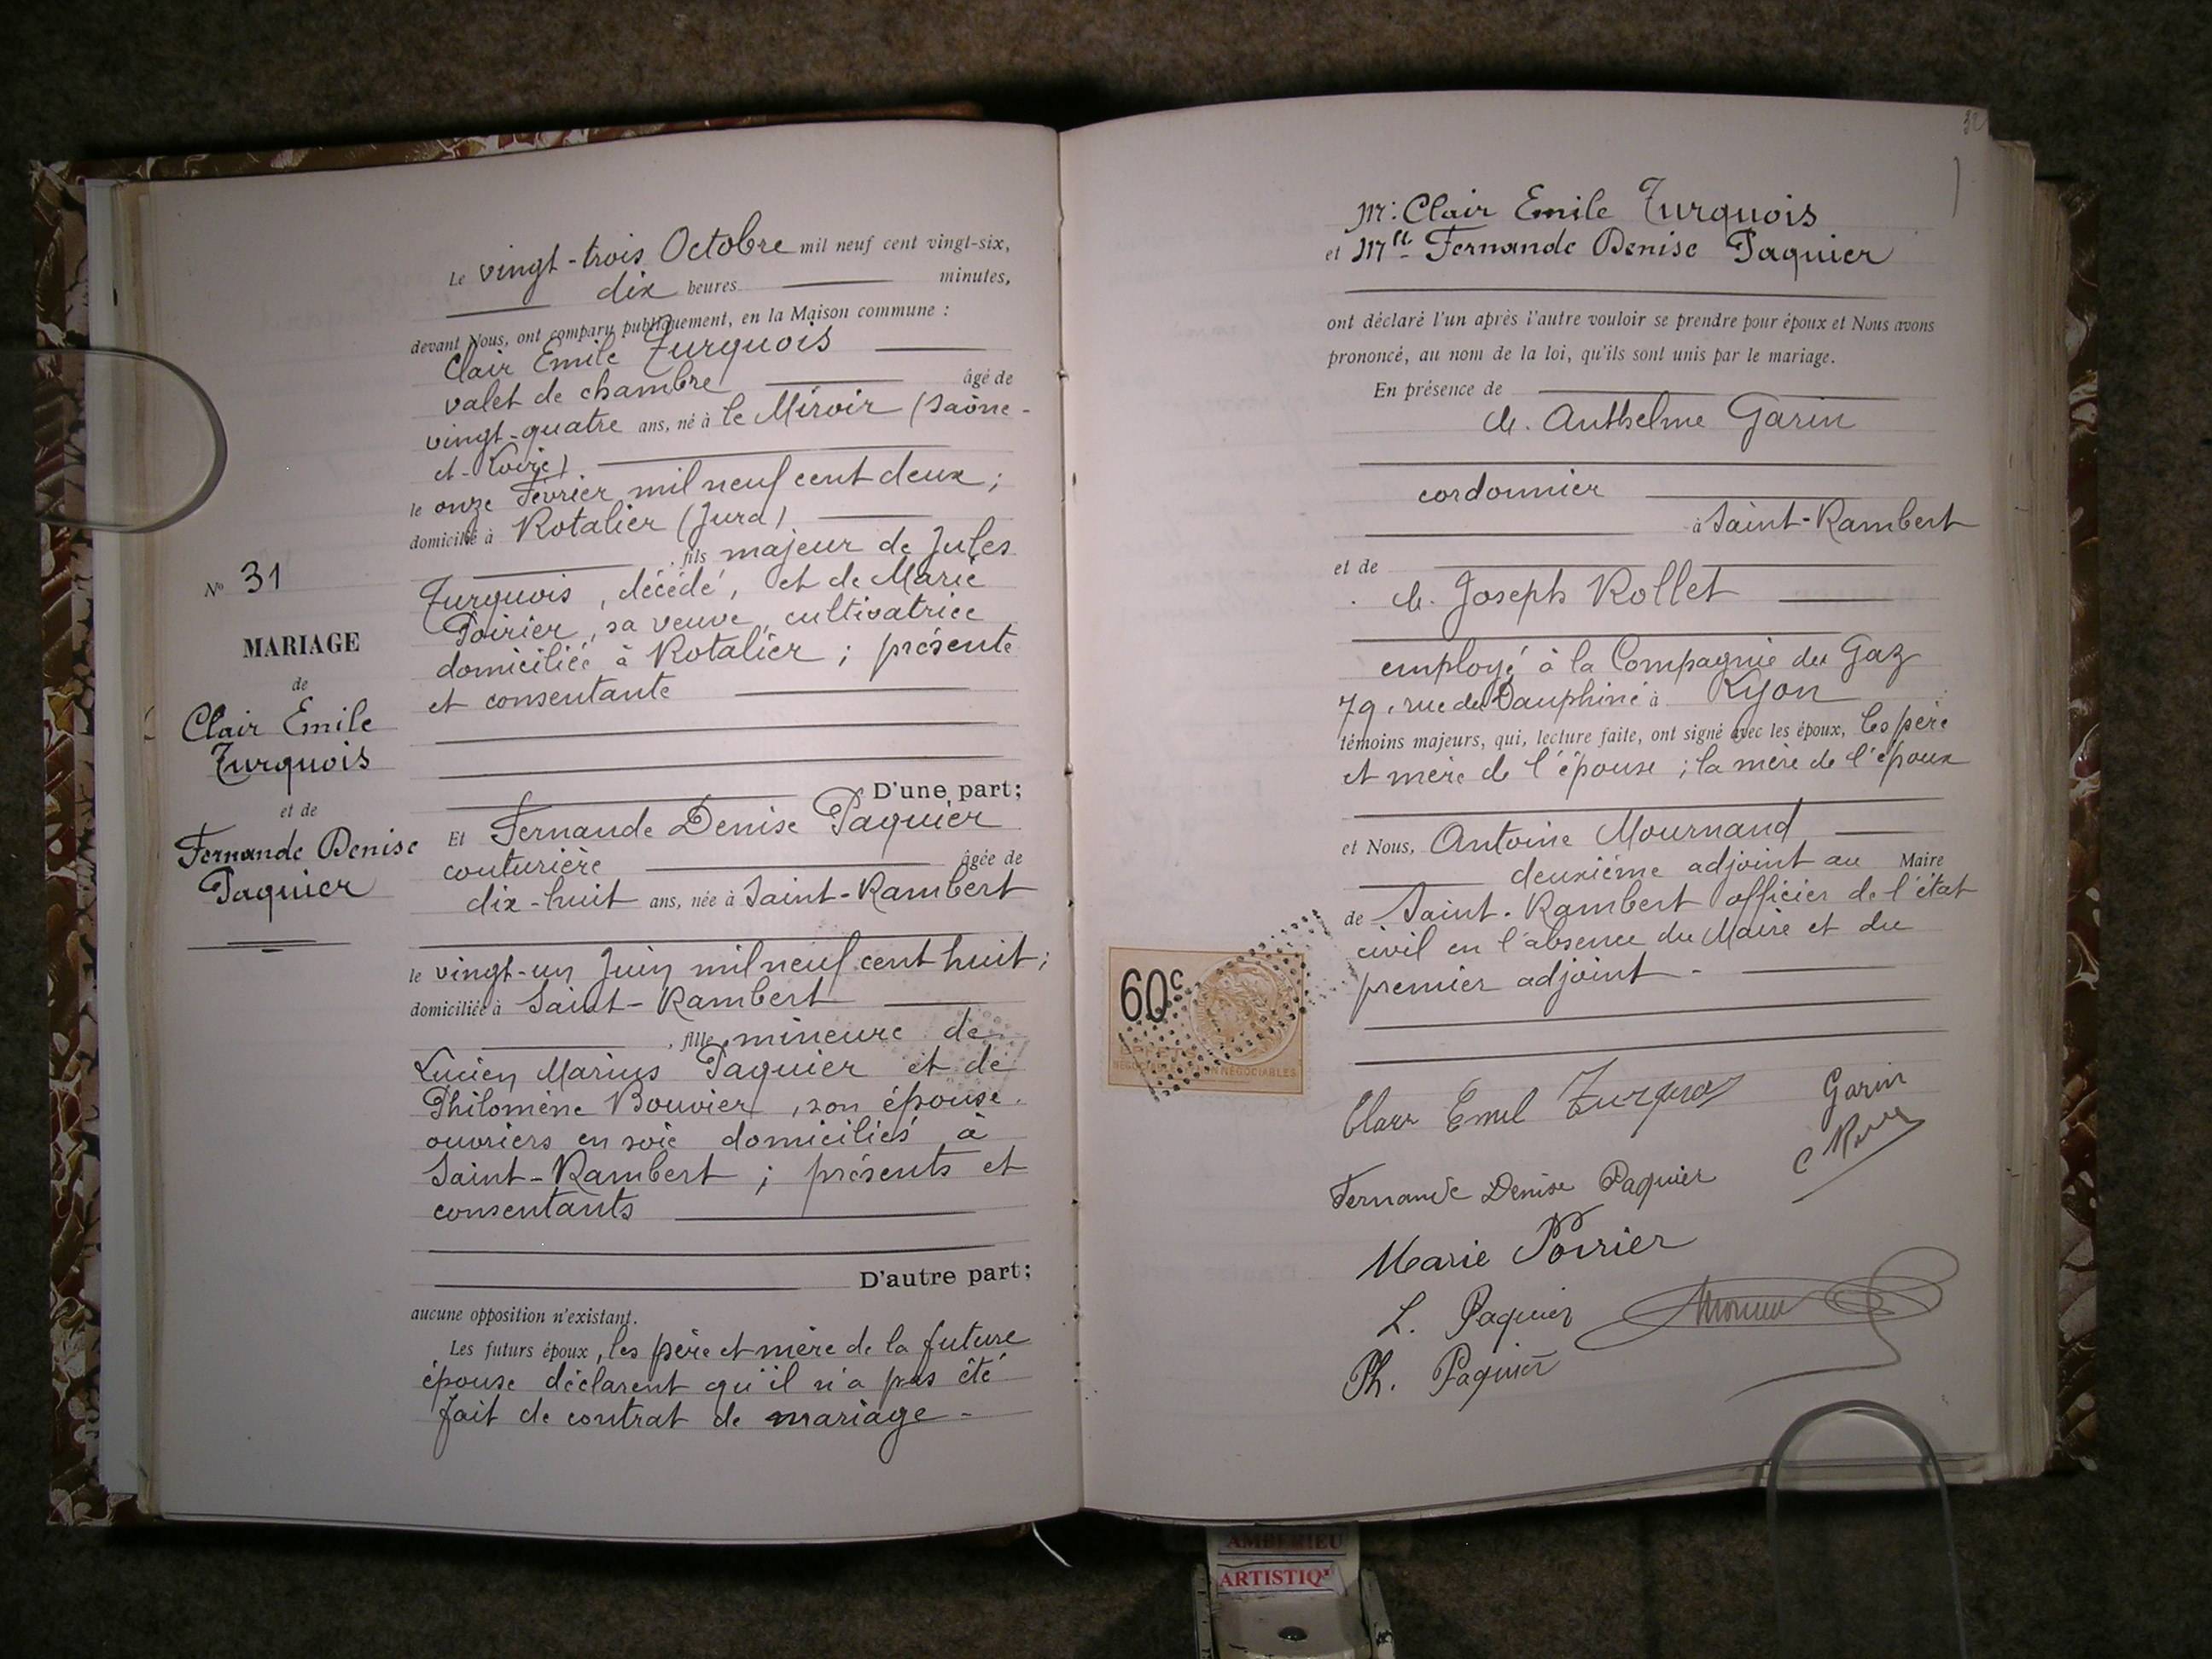 N° 31
MARIAGE
de
Clair Emile
Turquois
et de
Fernande Denise
Paquier
Le vingt-trois Octobre mil neuf cent vingt-six,
dix heures minutes,
devant Nous, ont comparu publiquement, en la Maison commune :
Clair Emile Turquois
valet de chambre âgé de
vingt-quatre ans, né à le Miroir (Saône-
et-Loire)
le onze Février mil neuf cent deux ;
domicilié à Rotalier (Jura)
, fils majeur de Jules
Turquois, décédé, et de Marie
Poirier, sa veuve, cultivatrice
domiciliée à Rotalier ; présente
et consentante
D'une part;
Et Fernande Denise Paquier
couturière âgée de
dix-huit ans, née à Saint-Rambert
le vingt-un Juin mil neuf cent huit ;
domiciliée à Saint-Rambert
, fille mineure de
Lucien Marius Paquier et de
Philomène Bouvier, son épouse.
ouvriers en soie domiciliés à
Saint-Rambert ; présents et
consentants
D'autre part;
aucune opposition n'existant.
Les futurs époux, les père et mère de la future
épouse déclarent qu'il n'a pas été
fait de contrat de mariage -
32
Mr: Clair Emile Turquois
et Mlle Fernande Denise Paquier
ont déclaré l'un après l'autre vouloir se prendre pour époux et Nous avons
prononcé, au nom de la loi, qu'ils sont unis par le mariage.
En présence de
M. Anthelme Garin
cordonnier
à Saint-Rambert
et de
M. Joseph Rollet
employé à la Compagnie du Gaz
79, rue du Dauphiné à Lyon
témoins majeurs, qui, lecture faite, ont signé avec les époux, les père
et mère de l'épouse ; la mère de l'époux
et Nous, Antoine Mournand
deuxième adjoint au Maire
de Saint-Rambert officier de l'état
civil en l'absence du Maire et du
premier adjoint -
60c
NÉGOCIABLES
Emel
Garin
Fernande Denise Paquier
Marie Poirier
L. Paquier
Ph. Paquier
AMBERIEU
ARTISTIQ